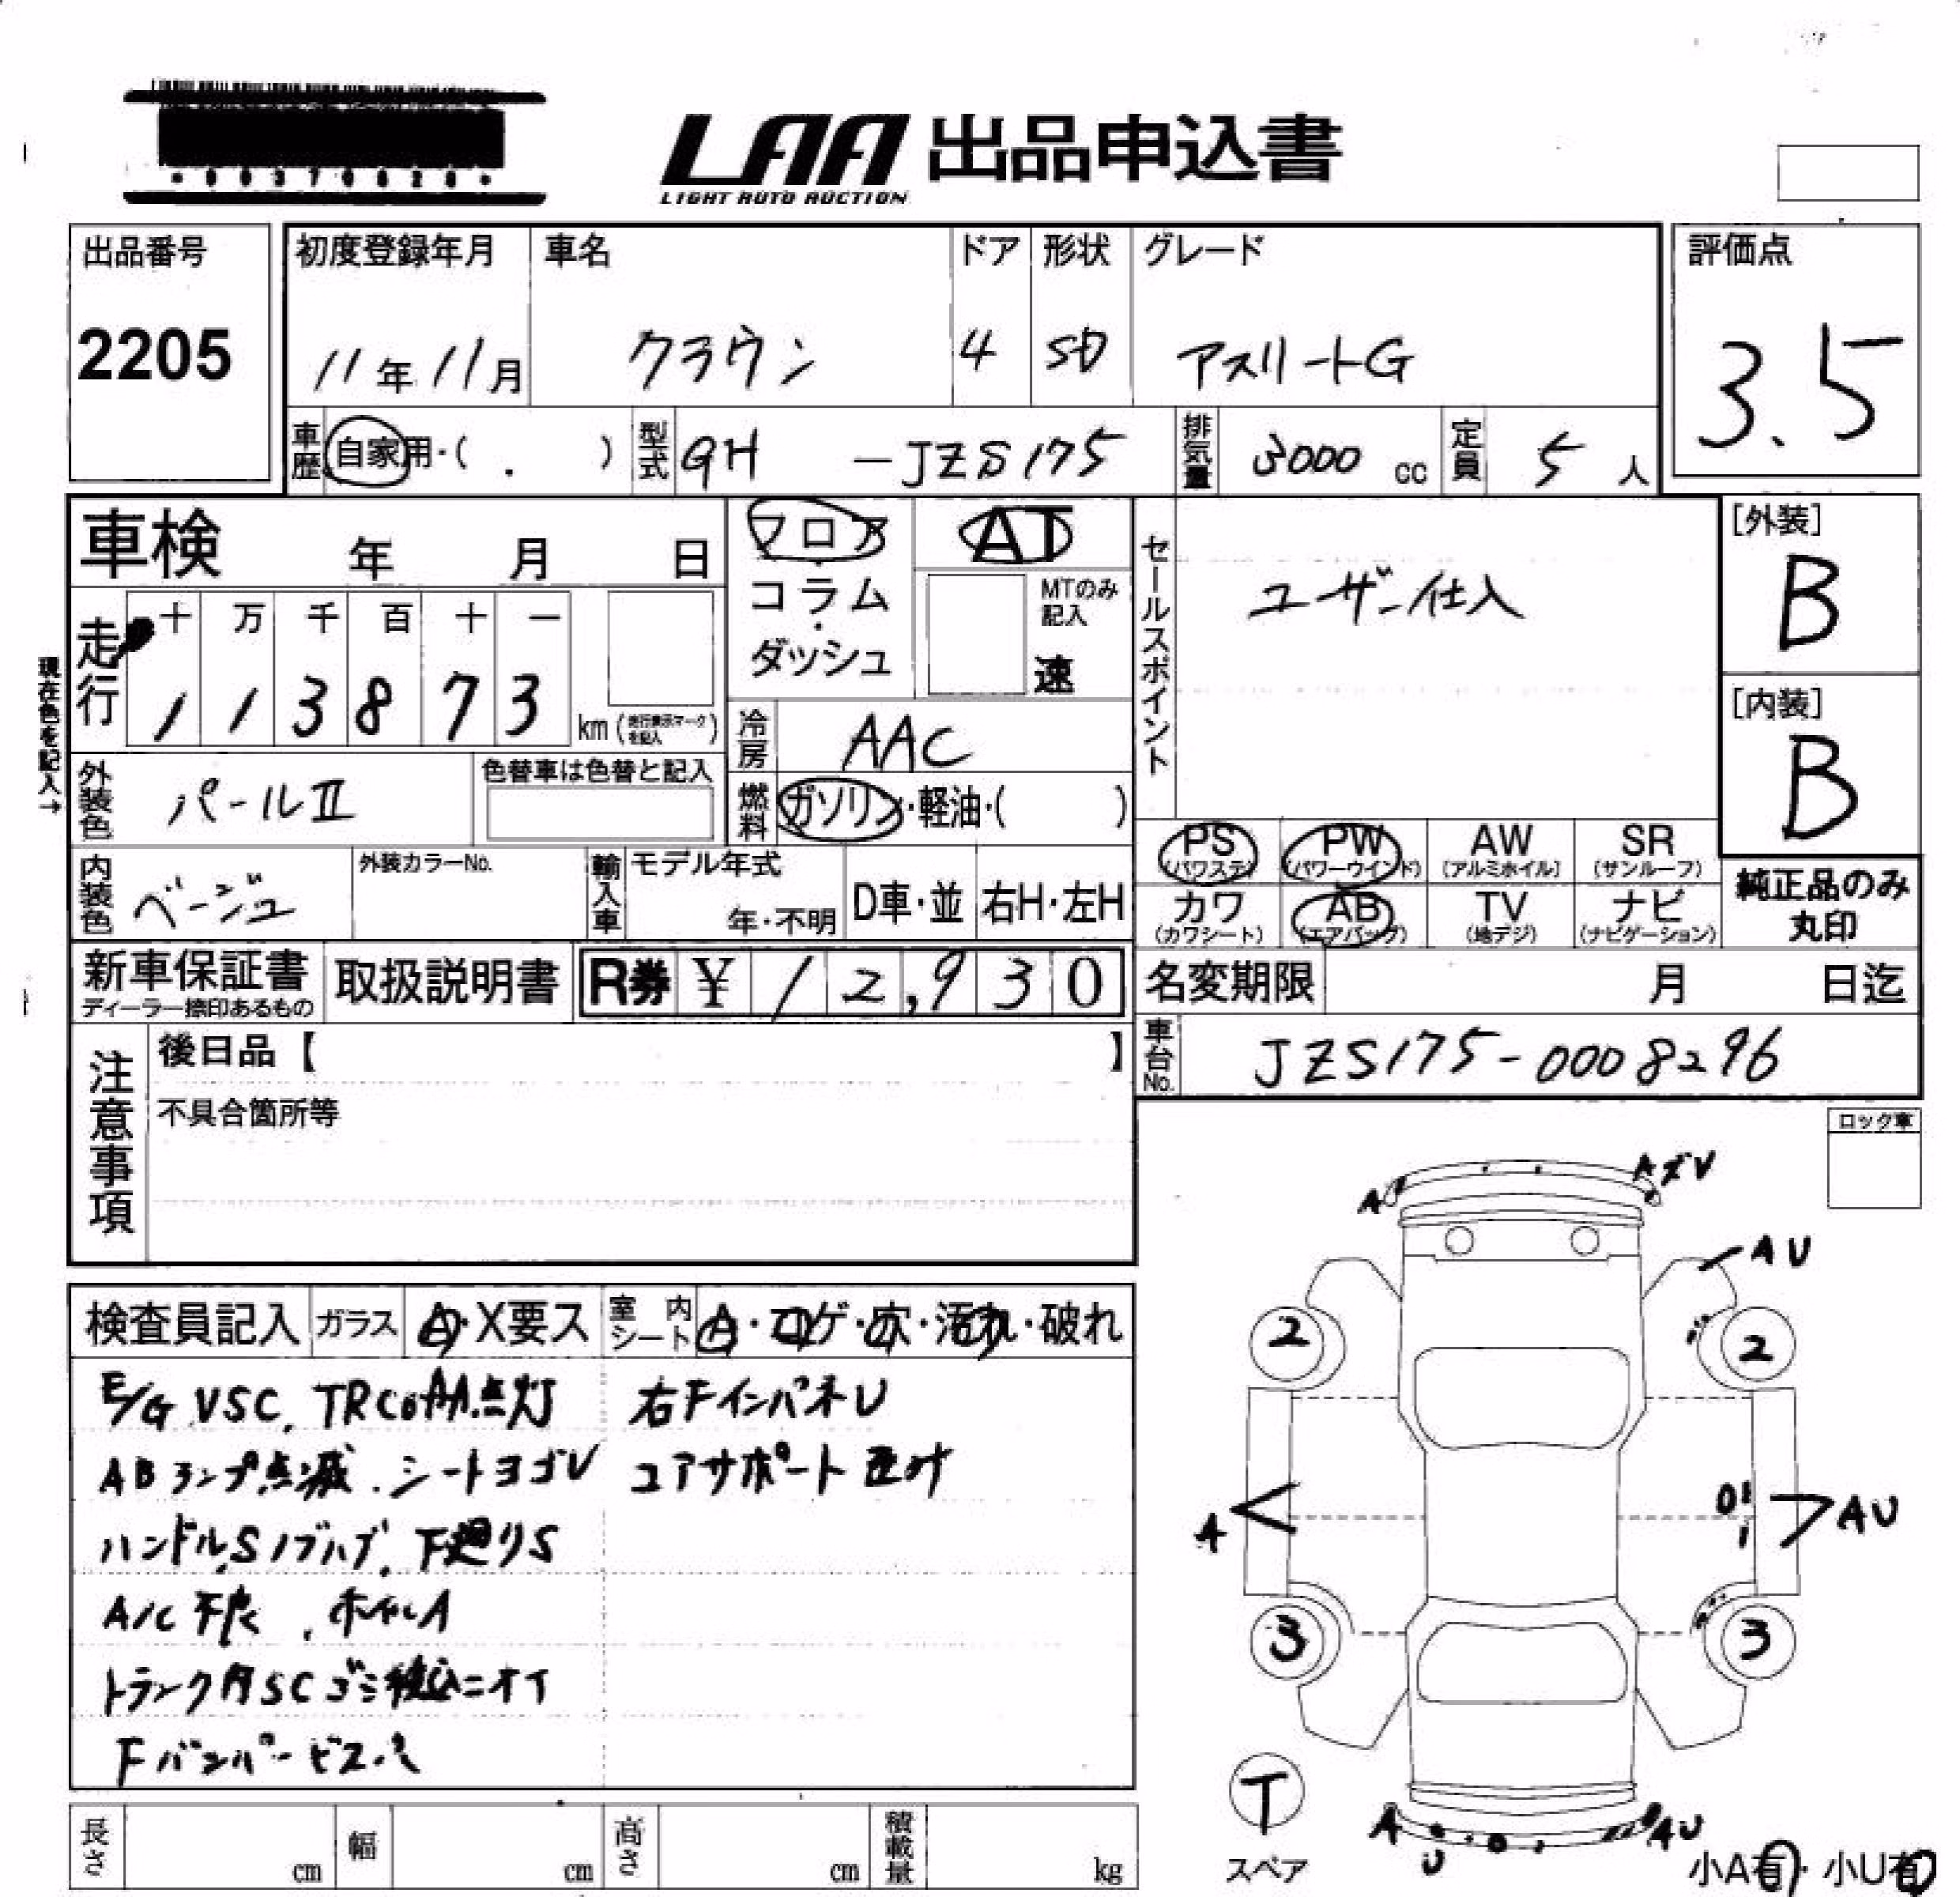 LAA 出品申込書
LIGHT AUTO AUCTION
出品番号
2205
初度登録年月
11年11月
車名
クラウン
ドア
4
形状
SD
グレード
アスリートG
評価点
3.5
車歴
自家用・( . )
型式
GH -JZS175
排気量
3000 cc
定員
5 人
車検 年 月 日
フロア
コラム
・
ダッシュ
AT
MTのみ
記入
速
セールスポイント
ユーザー仕入
[外装]
B
[内装]
B
現在色を記入→
走行
十 万 千 百 十 一
1 1 3 8 7 3
km (走行表示マークを記入)
冷房
AAC
外装色
パールII
色替車は色替と記入
燃料
ガソリン・軽油・( )
PS
(パワステ)
PW
(パワーウインド)
AW
(アルミホイル)
SR
(サンルーフ)
内装色
ベージュ
外装カラーNo.
輸入車
モデル年式
年・不明
D車・並
右H・左H
カワ
(カワシート)
AB
(エアバッグ)
TV
(地デジ)
ナビ
(ナビゲーション)
純正品のみ
丸印
新車保証書
ディーラー捺印あるもの
取扱説明書
R券 ¥12,930
名変期限 月 日迄
車台No.
JZS175-0008296
注意事項
後日品【 】
不具合箇所等
ロック車
検査員記入
ガラス
A・X要ス
室内シート
A・コゲ・穴・汚れ・破れ
E/G VSC, TRC 点灯
右FインパネU
ABランプ点滅.シートヨゴレ
ユアサポート
ハンドル,Sノブハゲ,下廻りS
A/C不良 ,ホイルA
トランク内SC ゴミ ニオイ
Fバンパービス
A
AズレV
AU
2
2
A
AU
3
3
T
スペア
A
U
AU
小A有・小U有
長さ cm
幅 cm
高さ cm
積載量 kg